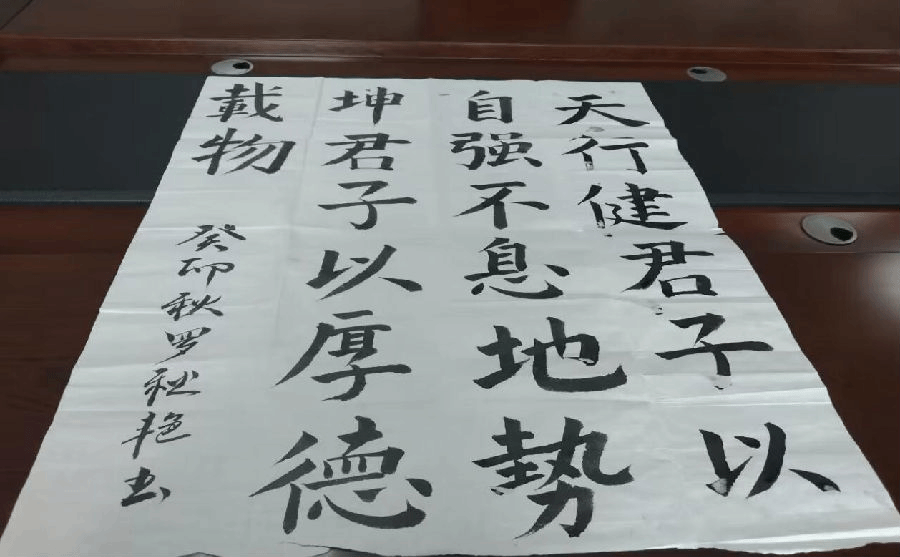 天行健君子以
自强不息地勢
坤君子以厚德
載物
癸卯秋罗秋艳书